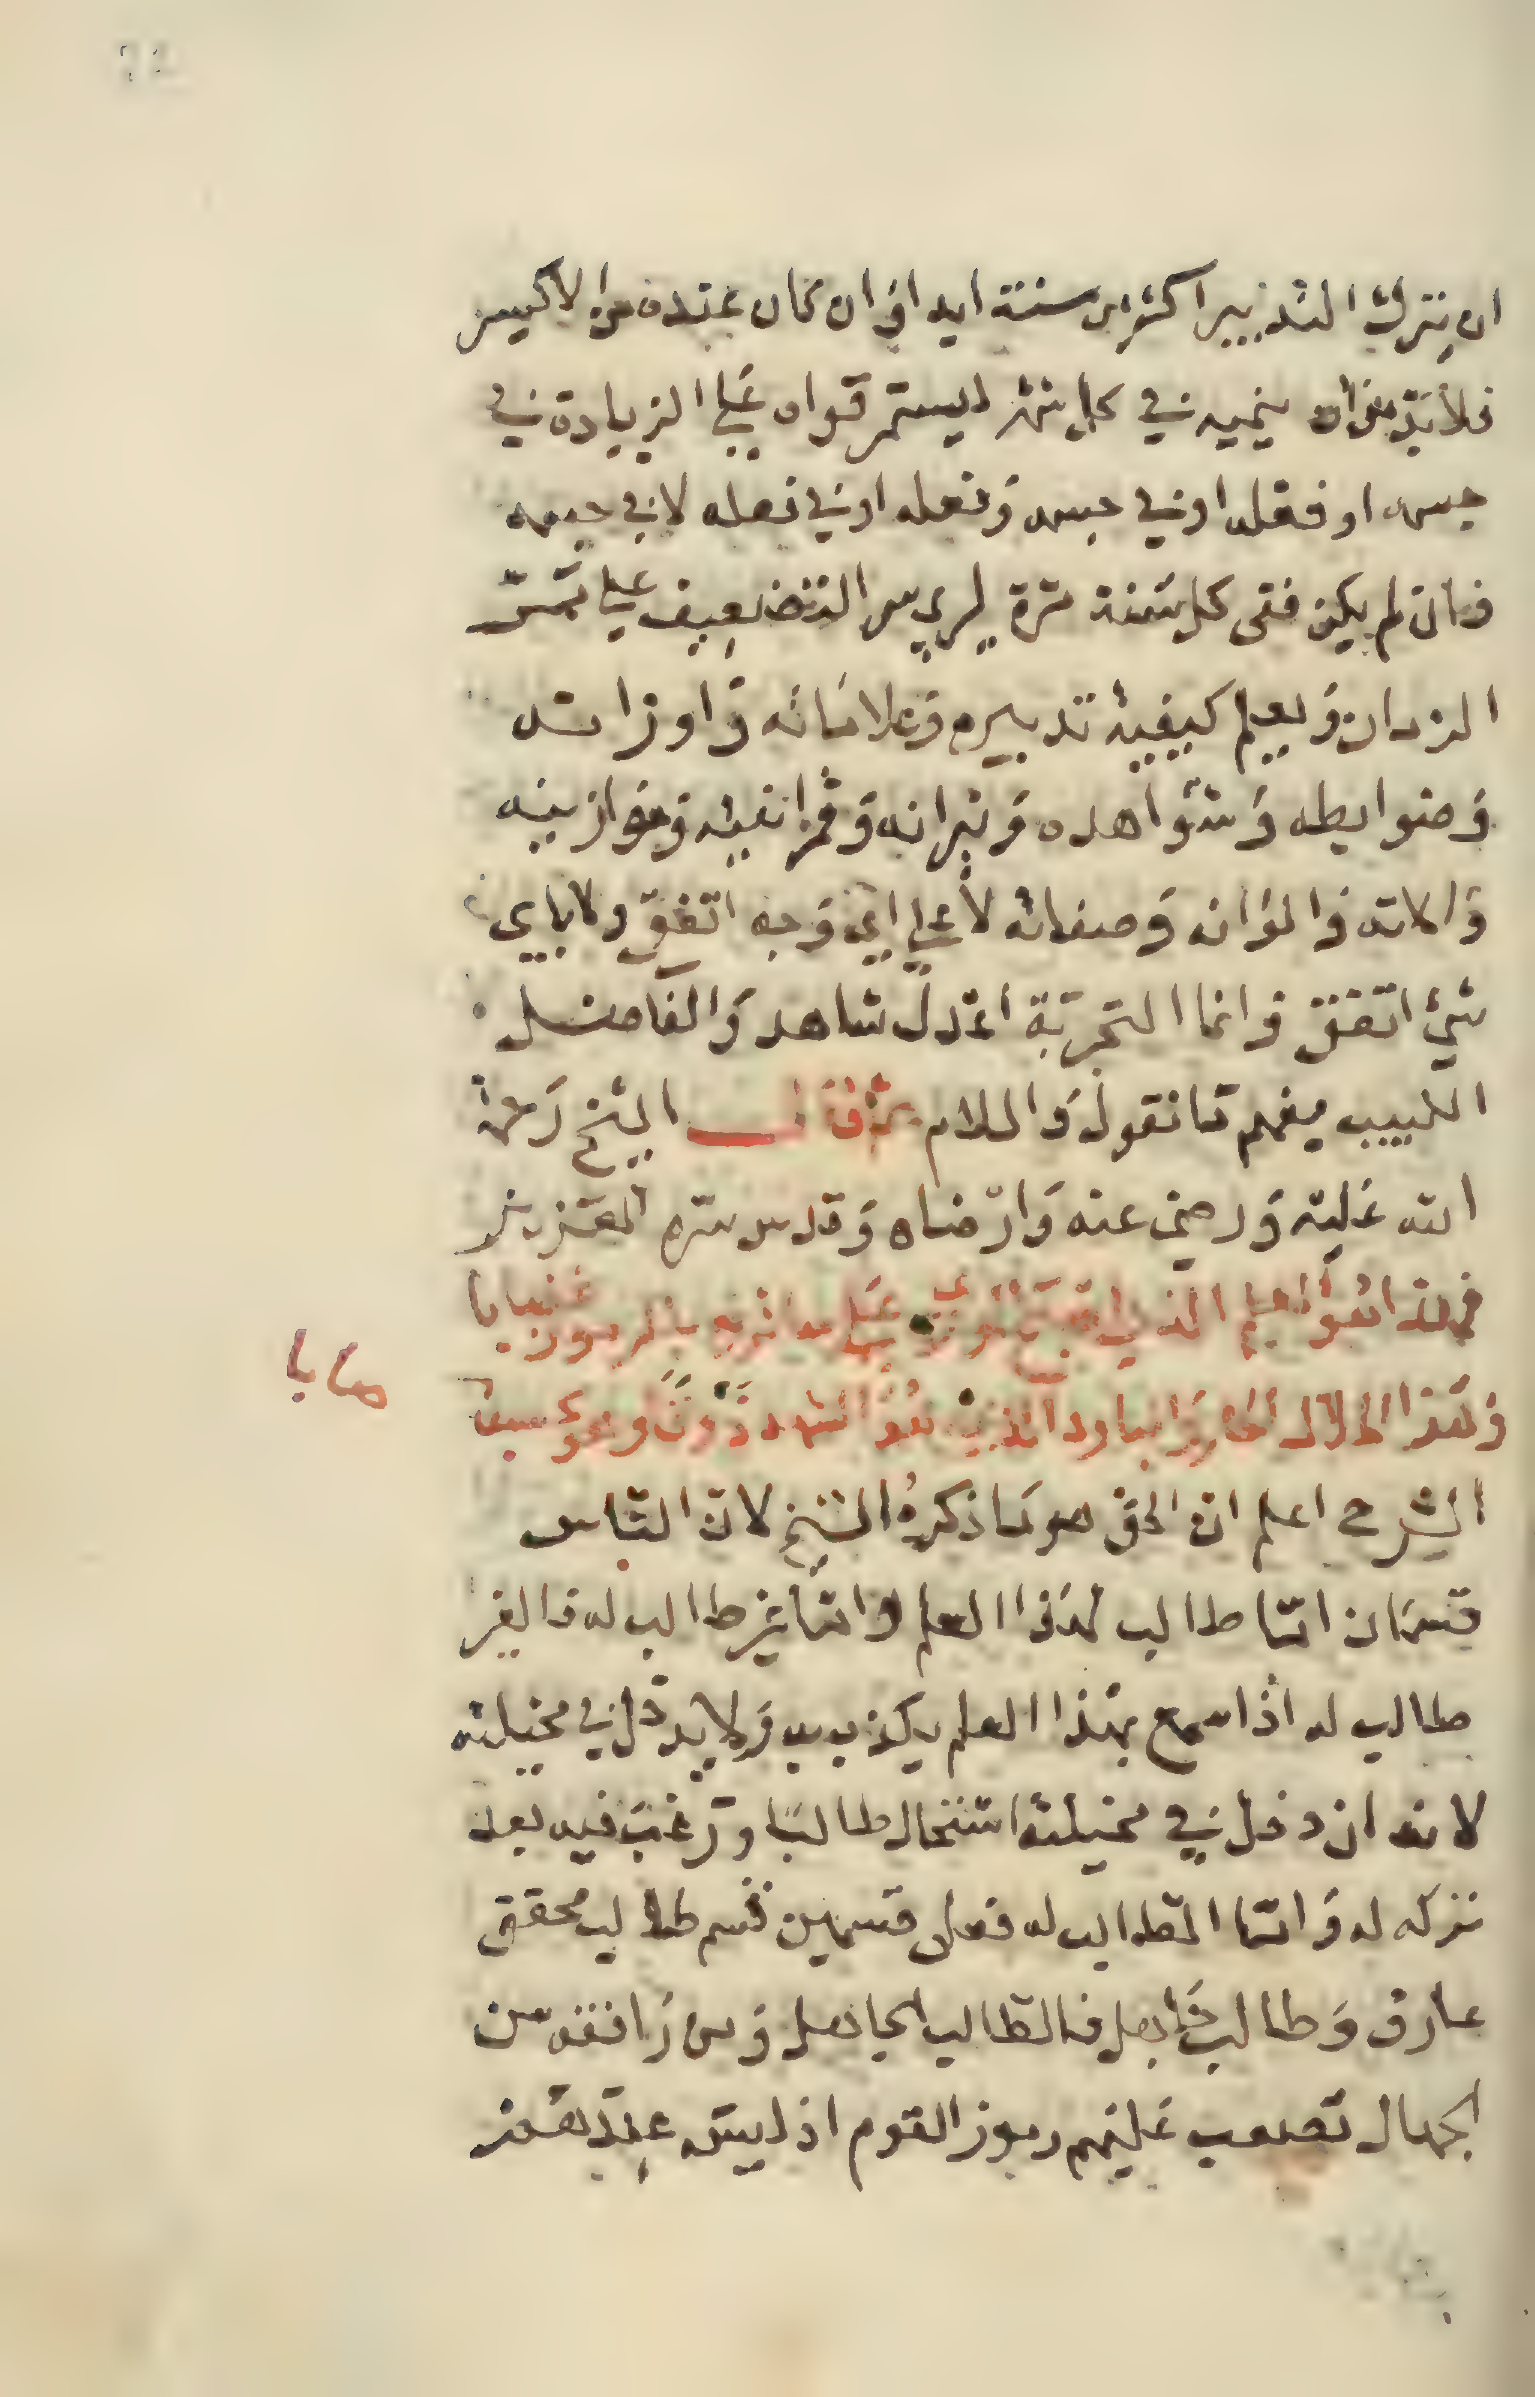 ان يترك التدبير اكثر من سنة ابدا فان كان عنده من الاكسير
فلا بد من ان ينميه في كل شهر ليستمر قواه على الزيادة في
جسمه او فعله او في جسمه وفعله او في فعله لا في جسمه
فان لم يكن ففى كل سنة مرة ليرى سر التضعيف على ممر
الزمان وليعلم كيفية تدبيره وعلاماته واوزانه
وضوابطه وشواهده ونيرانه وقرانينه وموازينه
والاته والوانه وصفاته لا على اي وجه اتفق ولا باي
شيء اتفق فانما التجربة اعدل شاهد والفاضل
اللبيب يفهم ما نقول والسلام ثم قال الشيخ رحمة
الله عليه ورضي عنه وارضاه وقدس سره العزيز
فهذا هو العلم الذي على برموز
وهذا الزلال البارد الذي هو الشهد
صابا
الشرح اعلم ان الحق هو ما ذكره الشيخ لان الناس
قسمان اما طالب لهذا العلم واما غير طالب له فالغير
طالب له اذا سمع بهذا العلم يكذب به ولا يدخل في مخيلته
لانه ان دخل في مخيلته استحال طالبا ورغب فيه بعد
تركه له واما الطالب له فعلى قسمين قسم طالب محقق
عارف وطالب جاهل فالطالب الجاهل ومن رافقه من
الجهال تصعب عليهم رموز القوم اذ ليس عندهم